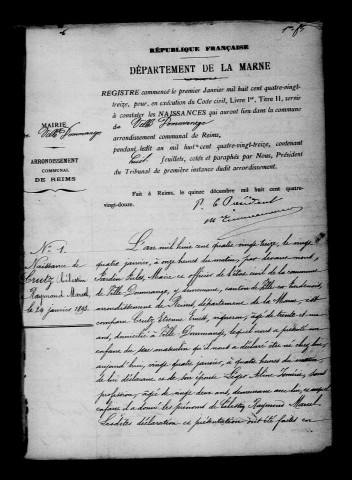 1er ft
RÉPUBLIQUE FRANÇAISE
DÉPARTEMENT DE LA MARNE
REGISTRE commencé le premier Janvier mil huit cent quatre-vingt-
treize, pour, en exécution du Code civil, Livre Ier, Titre II, servir
à constater les NAISSANCES qui auront lieu dans la commune
de Ville Dommange
arrondissement communal de Reims,
pendant ledit an mil huit cent quatre-vingt-treize, contenant
huit feuillets, cotés et paraphés par Nous, Président
du Tribunal de première instance dudit arrondissement.
Fait à Reims, le quinze décembre mil huit cent quatre-
vingt-douze.
P. le Président
MAIRIE
de Ville Dommange
ARRONDISSEMENT
COMMUNAL
DE REIMS
No 1.
Naissance de
Crutz Célestin
Raymond Marcel
le 24 janvier 1893.
L'an mil huit cent quatre vingt treize, le vingt
quatre janvier, à onze heures du matin, par devant nous,
Jardin Jules, Maire et officier de l'état civil de la commune
de Ville Dommange, y demeurant, canton de Ville en Tardenois,
arrondissement de Reims, département de la Marne, est
comparu Crutz Etienne Emile, vigneron, âgé de trente
ans, domicilié à Ville Dommange, lequel nous a présenté un
enfant du sexe masculin qu'il nous a déclaré être né chez lui,
aujourd'hui, vingt quatre janvier, à quatre heures du matin,
de lui déclarant et de son épouse Léger Aline, sans
profession, âgée de vingt deux ans, demeurant avec lui, et auquel
enfant il a donné les prénoms de Célestin Raymond Marcel
Lesdites déclaration et présentation ont été faites en